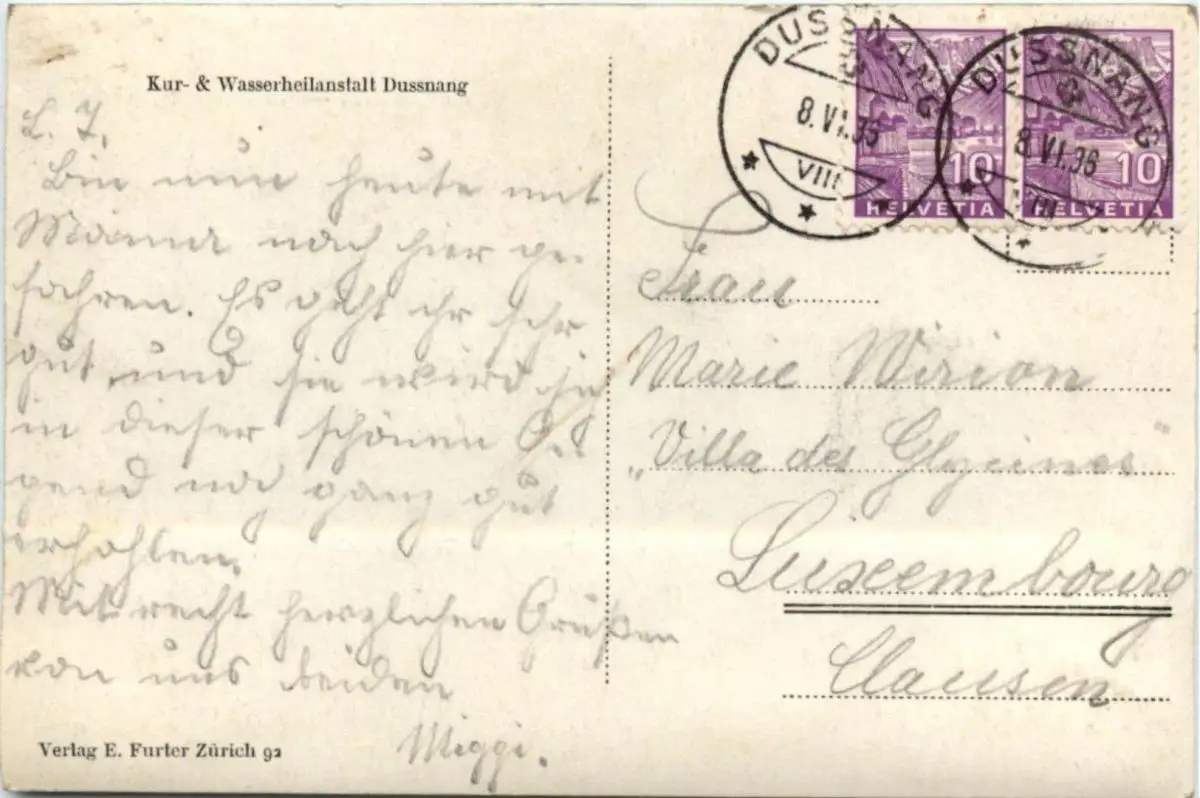 Kur- & Wasserheilanstalt Dussnang
L. T.
Bin nun heute mit
Mama nach hier ge-
fahren. Es geht ihr sehr
gut, und sie wird sich
in dieser schönen Ge-
gend noch ganz gut
erhohlen.
Mit recht herzlichen Grüßen
von uns beiden
Miggi.
Verlag E. Furter Zürich 92
DUSSNANG
8.VI.36
VIII
DUSSNANG
8.VI.36
VIII
10
HELVETIA
10
HELVETIA
Frau
Marie Wirion
"Villa des Glycines"
Luxembourg
Clausen